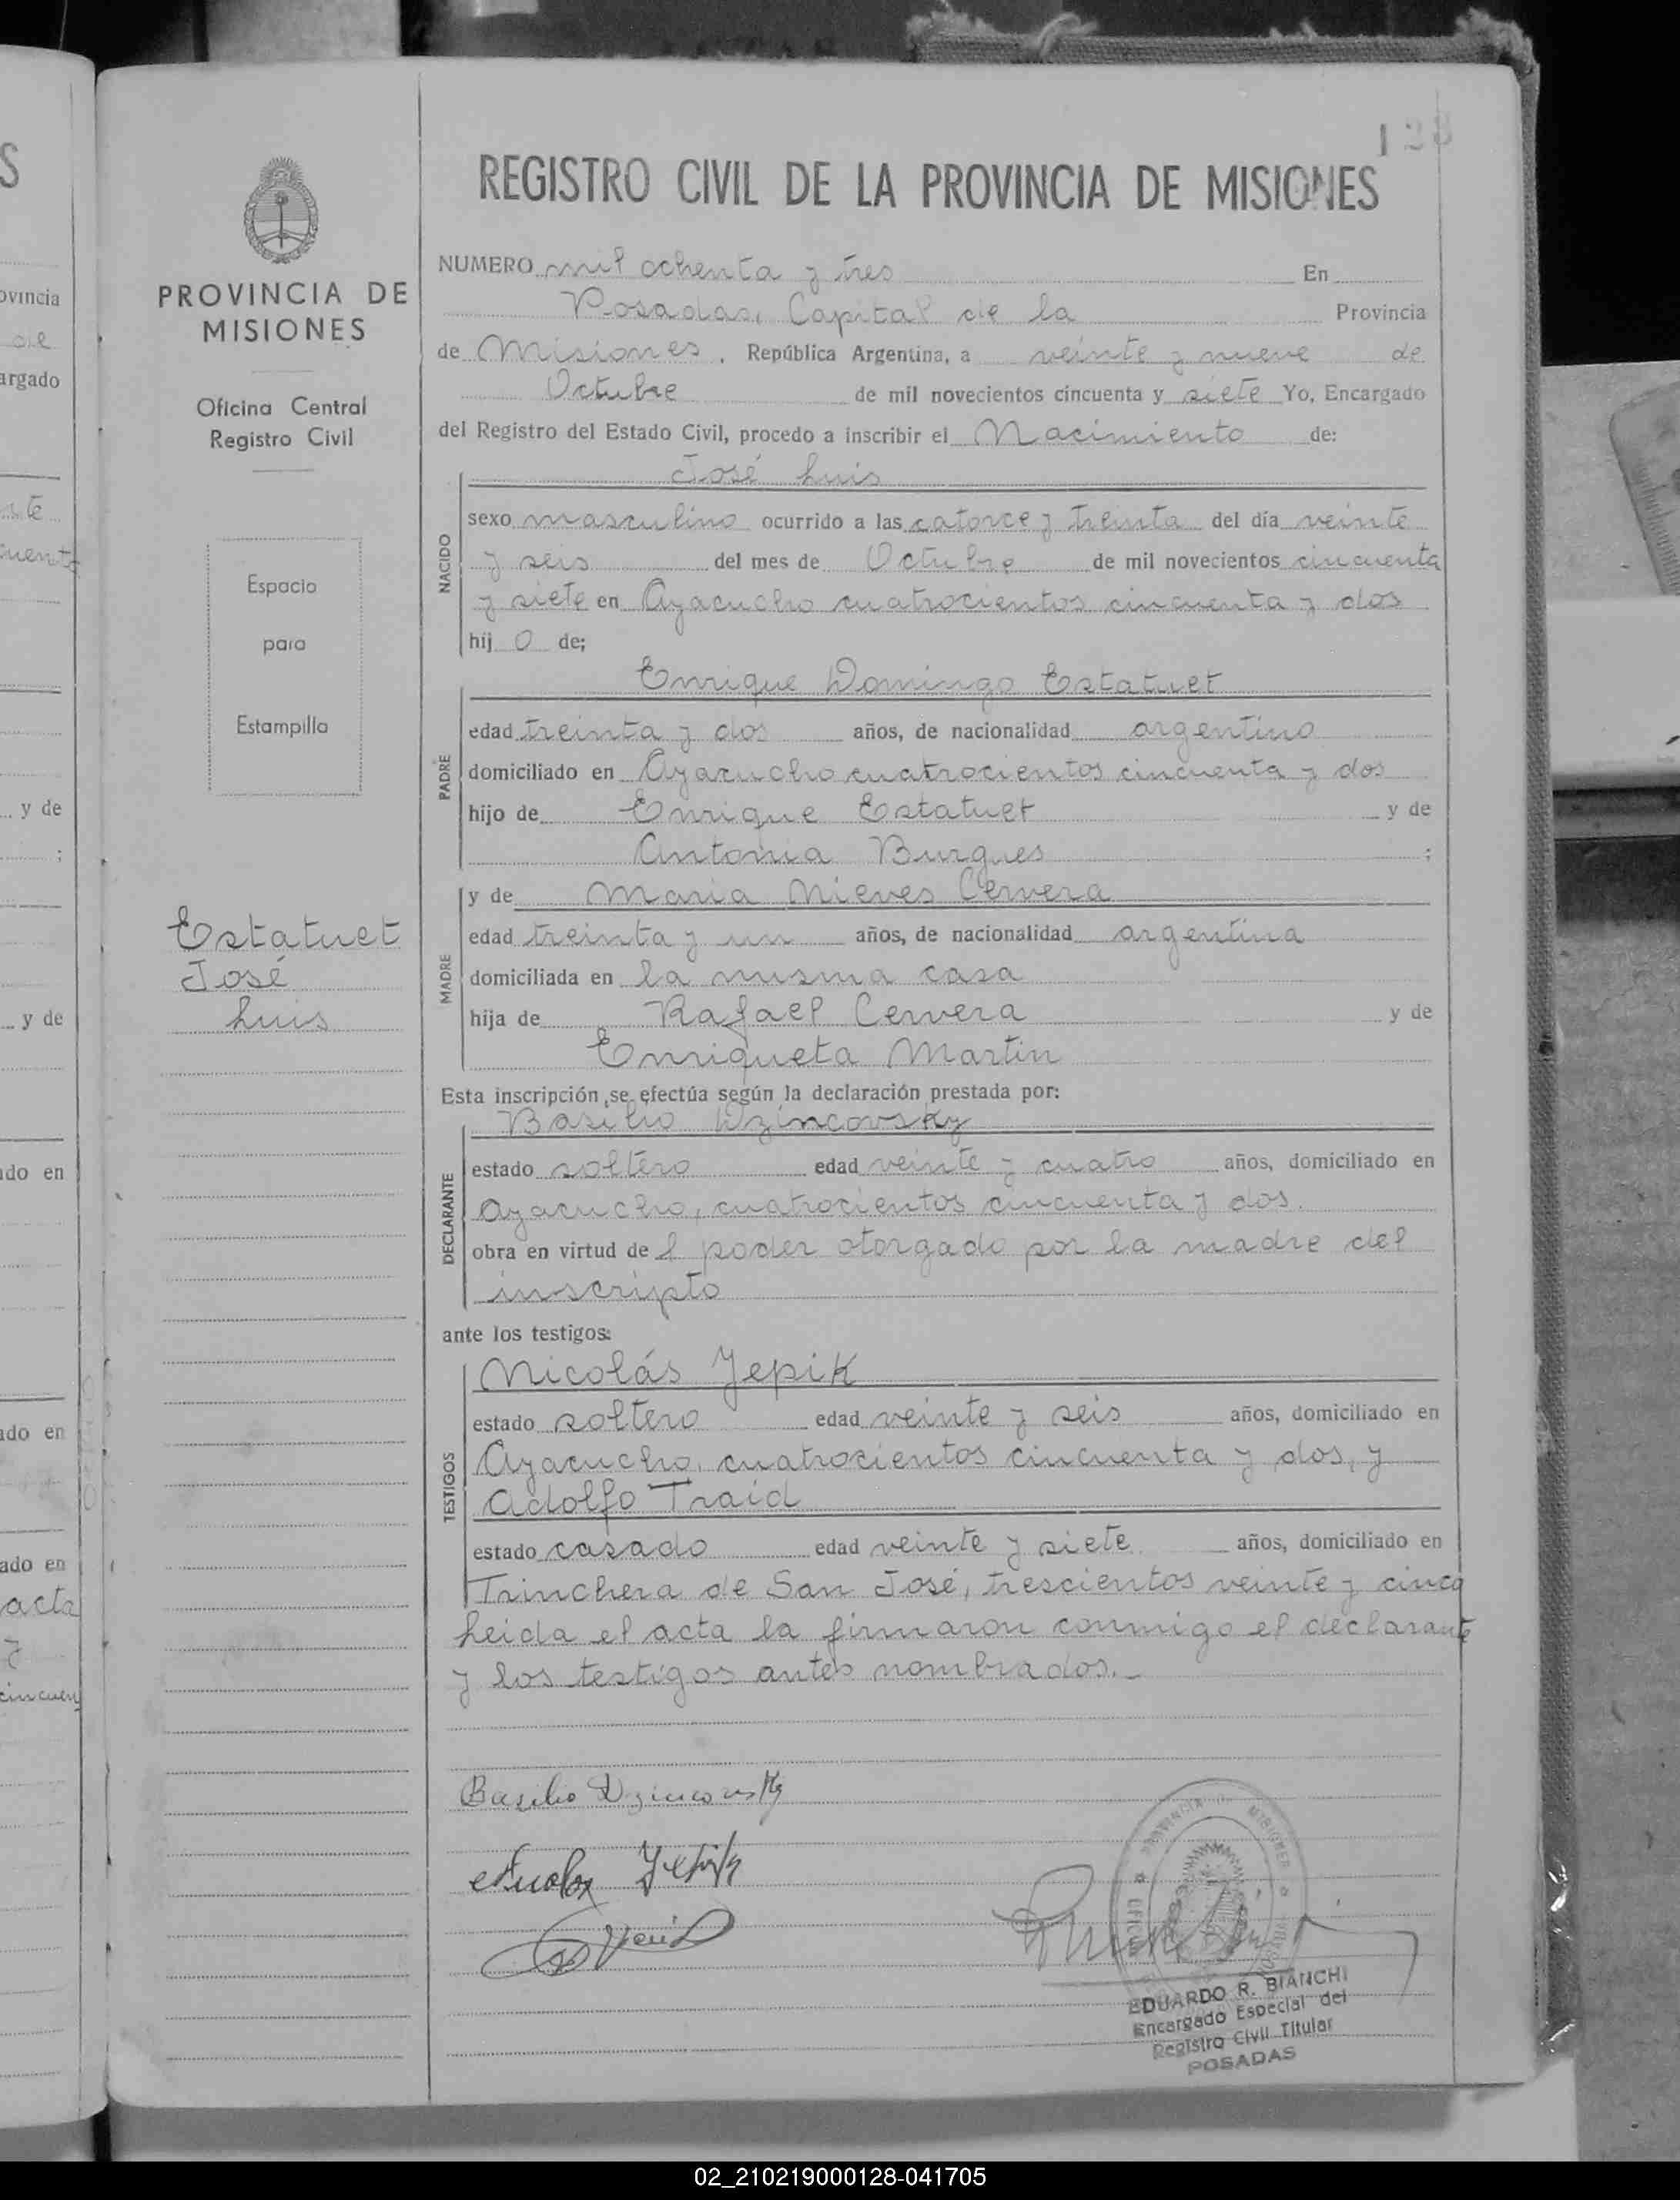 128
REGISTRO CIVIL DE LA PROVINCIA DE MISIONES
PROVINCIA DE
MISIONES
Oficina Central
Registro Civil
Espacio
para
Estampilla
Estatuet
José
Luis
NUMERO mil ochenta y tres En
Posadas, Capital de la Provincia
de Misiones, República Argentina, a veinte y nueve de
Octubre de mil novecientos cincuenta y siete Yo, Encargado
del Registro del Estado Civil, procedo a inscribir el Nacimiento de:
NACIDO
José Luis
sexo masculino ocurrido a las catorce y treinta del día veinte
y seis del mes de Octubre de mil novecientos cincuenta
y siete en Ayacucho cuatrocientos cincuenta y dos
hij o de;
PADRE
Enrique Domingo Estatuet
edad treinta y dos años, de nacionalidad argentino
domiciliado en Ayacucho cuatrocientos cincuenta y dos
hijo de Enrique Estatuet y de
Antonia Burgues ;
MADRE
y de Maria Nieves Cervera
edad treinta y un años, de nacionalidad argentina
domiciliada en la misma casa
hija de Rafael Cervera y de
Enriqueta Martin
Esta inscripción se efectúa según la declaración prestada por:
DECLARANTE
Basilio Dzincovsky
estado soltero edad veinte y cuatro años, domiciliado en
Ayacucho, cuatrocientos cincuenta y dos.
obra en virtud de l poder otorgado por la madre del
inscripto
ante los testigos:
TESTIGOS
Nicolás Jepik
estado soltero edad veinte y seis años, domiciliado en
Ayacucho, cuatrocientos cincuenta y dos, y
Adolfo Traid
estado casado edad veinte y siete años, domiciliado en
Trinchera de San José, trescientos veinte y cinco
Leida el acta la firmaron conmigo el declarante
y los testigos antes nombrados.-
Basilio Dzincovsky
PROVINCIA DE MISIONES
EDUARDO R. BIANCHI
Encargado Especial del
Registro Civil Titular
POSADAS
02_210219000128-041705